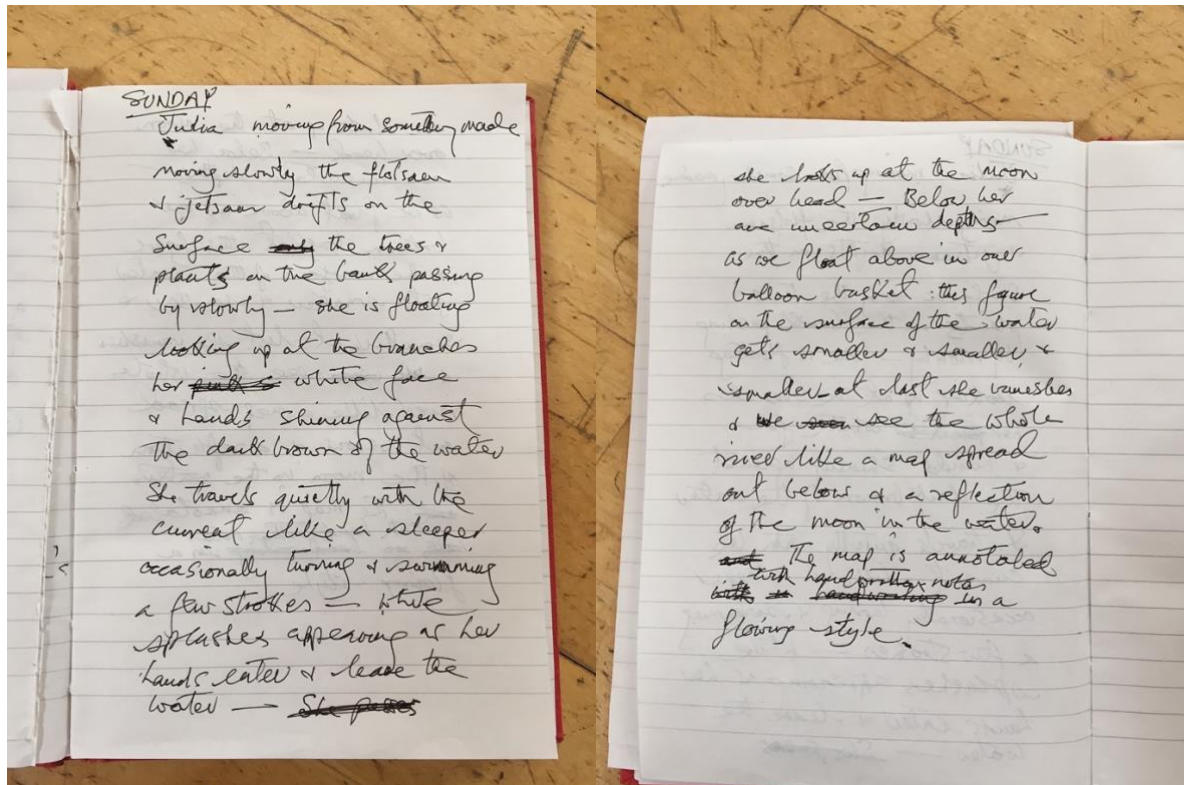 SUNDAY
moving from something made
moving slowly the flotsam
& jetsam drifts on the
surface the trees &
plants on the bank passing
by slowly — she is floating
looking up at the branches
her white face
& hands shining against
the dark brown of the water
She travels quietly with the
current like a sleeper
occasionally turning & swimming
a few strokes — white
splashes appearing as her
hands enter & leave the
water — She passes
she looks up at the moon
over head — Below her
are uncertain depths —
as we float above in our
balloon basket this figure
on the surface of the water
gets smaller & smaller &
smaller at last she vanishes
& we see the whole
river like a map spread
out below & a reflection
of the moon in the water.
and The map is annotated
with handwritten notes
with handwriting in a
flowing style.